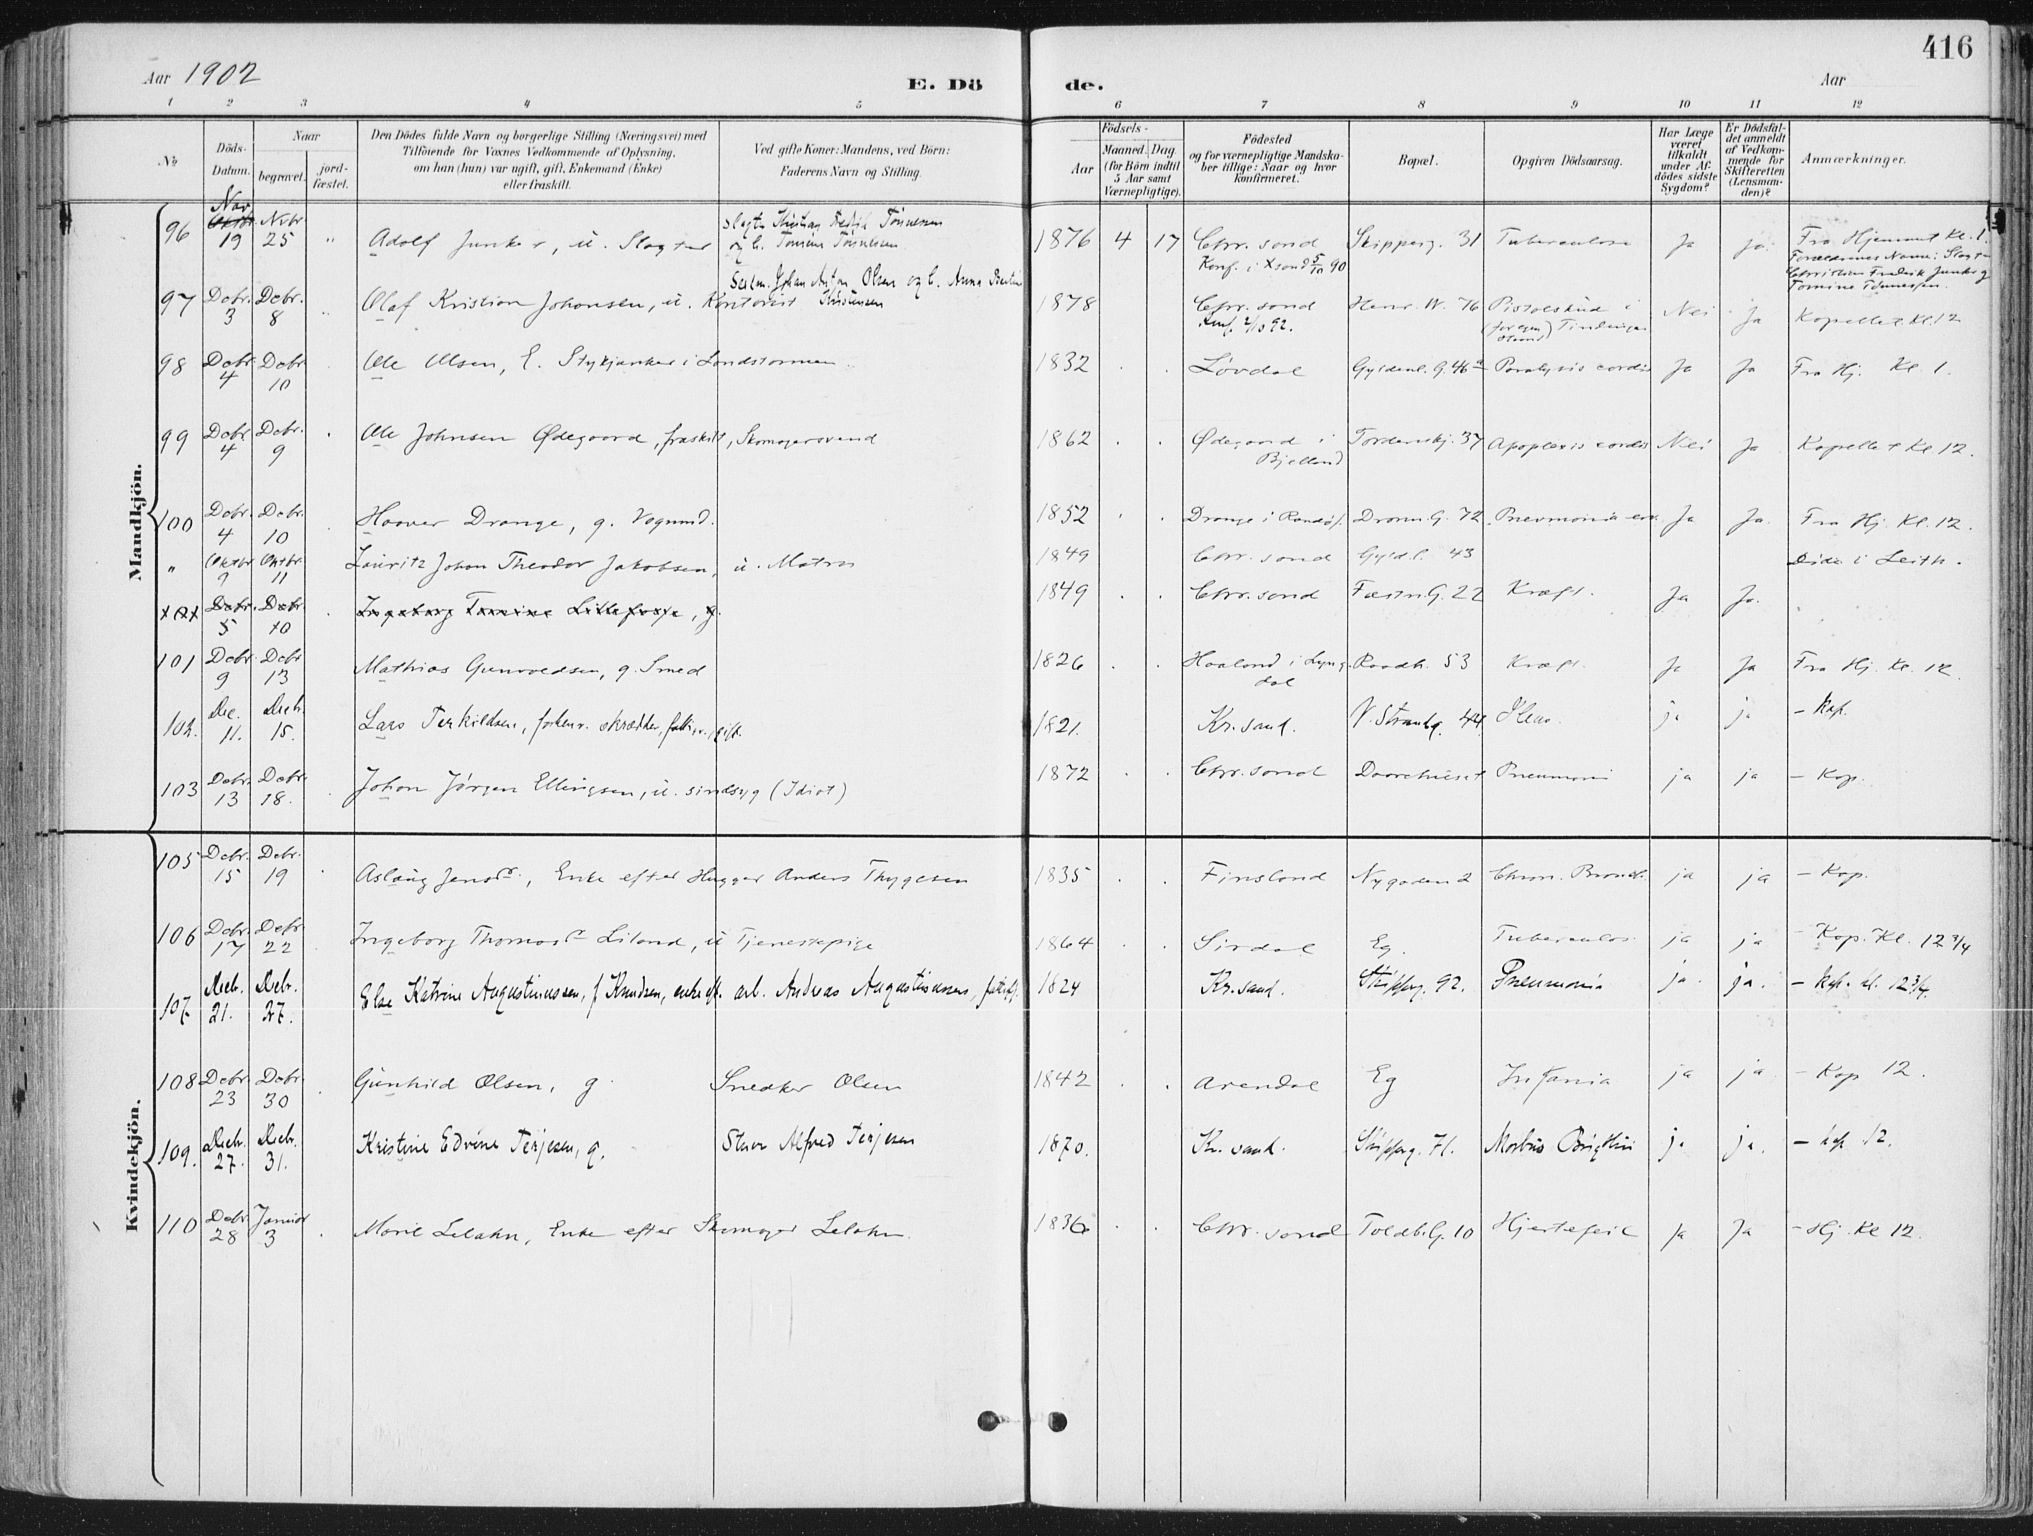 416
Aar 1902
E. Dö de.
Aar
1 2 3 4 5 6 7 8 9 10 11 12
No
Döds-Datum.
Naar begravet. jordfæstet.
Den Dödes fulde Navn og borgerlige Stilling (Næringsvei) med Tilföiende for Voxnes Vedkommende af Oplysning, om han (hun) var ugift, gift, Enkemand (Enke) eller fraskilt.
Ved gifte Koner: Mandens, ved Börn: Faderens Navn og Stilling.
Födsels-
Aar
Maaned. Dag. (for Börn indtil 5 Aar samt Værnepligtige).
Födested og for værnepligtige Mandskaber tillige: Naar og hvor konfirmeret.
Bopæl.
Opgiven Dödsaarsag.
Har Læge været tilkaldt under Afdödes sidste Sygdom?
Er Dödsfaldet anmeldt af Vedkommende for Skifteretten (Lensmanden)?
Anmærkninger.
Mandkjön.
96 Nov. 19 Nvbr. 25 " Adolf Junker, u. Slagter 1876 4 17 Chr.sand Konf. i Xsand 5/10 90 Skipperg. 31 Tuberculose Ja Ja Fra Hjemmet Kl. 1.
97 Debr. 3 Debr. 8 Olaf Kristian Johansen, u. Kontorist 1878 Chr.sand Konf. 2/10 92. Henr. W. 76 Pistolskud i Nei Ja Kapellet Kl. 12
98 Debr. 4 Debr. 10 Ole Olsen, E. Stykjunker i Landstormen 1832 Løvdal Gyldenl. G. 46 a Paralysis cordis Ja Ja Fra Hj. Kl. 1.
99 Debr. 4 Debr. 9 Ole Johnsen Ødegaard, fraskilt, Skomagersvend 1862 Ødegaard i Bjelland Tordenskj. 37 Apoplexis cordis Nei Ja Kapellet Kl. 12.
100 Debr. 4 Debr. 10 Haaver Drange, g. Vognmd. 1852 Drange i Randøs. Dronn. G. 72 Pneumonia Ja Ja. Fra Hj. Kl. 12.
" Oktbr. 9 Oktbr. 11 Lauritz Johan Theodor Jakobsen, u. Matros 1849 Chr.sand Gyldl. 43 Døde i Leith.
101 Debr. 5 Debr. 10 Ingeborg Tomine Lillefosse, g. 1849 Chr.sand Fæstn. G. 22 Kræft. Ja Ja.
101 Debr. 9 Debr. 13 Mathias Gunvaldsen, g. Smed 1826 Haaland i Lyngdal Raadh. 53 Kræft. Ja Ja Fra Hj. Kl. 12.
102. Dec. 11. Decb. 15. Lars Terkildsen, forhenv. skrædder, gift. 1821. Kr.sand. V. Strandg. 44 Ileus. ja ja - kap.
103 Debr. 13 Debr. 18. Johan Jørgen Ellingsen, u. sindsyg (Idiot) 1872 Chr.sand Daarehuset Pneumoni ja ja - Kap.
Kvindekjön.
105 Debr. 15 Debr. 19 Aslaug Jensdr., Enke efter Hugger Anders Thygesen 1835 Finsland Nygaden 2 Chron. Bronch. ja ja - Kap.
106 Debr. 17 Debr. 22 Ingeborg Thomasdr. Liland, u Tjenestepige 1864 Sirdal Eg. Tuberculos. ja ja - Kap. Kl. 12 3/4
107. Decb. 21. Decb. 27. Else Katrine Augustinussen, f Knudsen, enke eft. arb. Andreas Augustinussen, 1824 Kr.sand. Skipperg. 92. Pneumonia ja. ja. - kap. kl. 12 3/4.
108 Debr. 23 Debr. 30 Gunhild Olsen, g. Snedker Olsen 1842 Arendal Eg Insania ja ja - Kap 12.
109. Decb. 27. Decb. 31. Kristine Edvine Terjesen, g. Stuer Alfred Terjesen 1870. Kr.sand. Skipperg. 71. Morbus Brigthii ja ja. - kap 12.
110 Debr. 28 Januar 3 Marie Lelahn, Enke efter Skomager Lelahn. 1836 Chr.sand Toldb. G. 10 Hjertefeil Ja Ja - Hj. Kl 12.